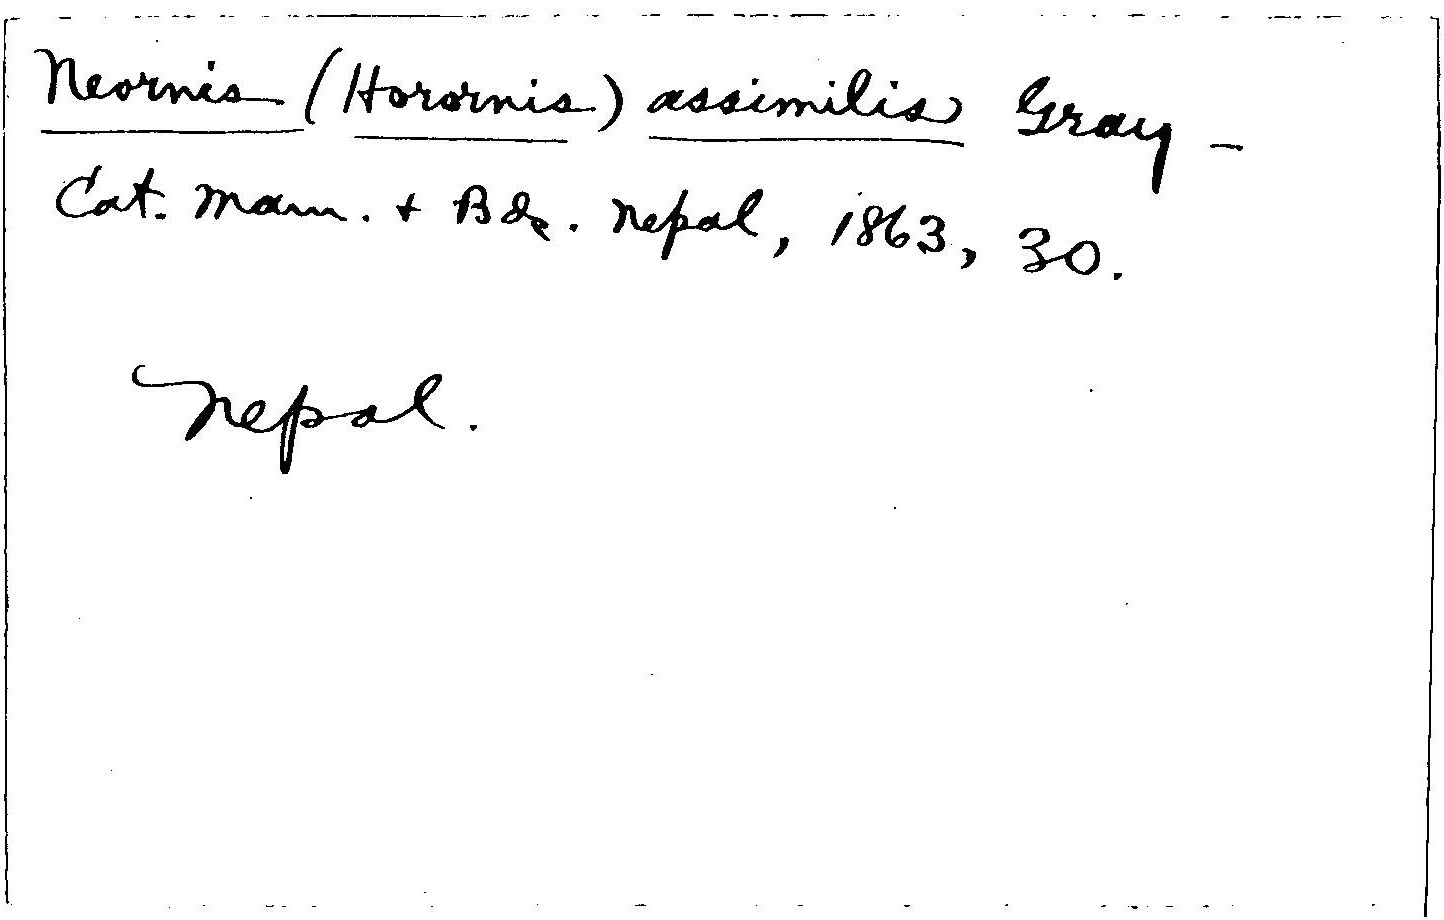 Neornis (Horornis) assimilis Gray -
Cat. Mam. + Bds. Nepal, 1863, 30.
Nepal.